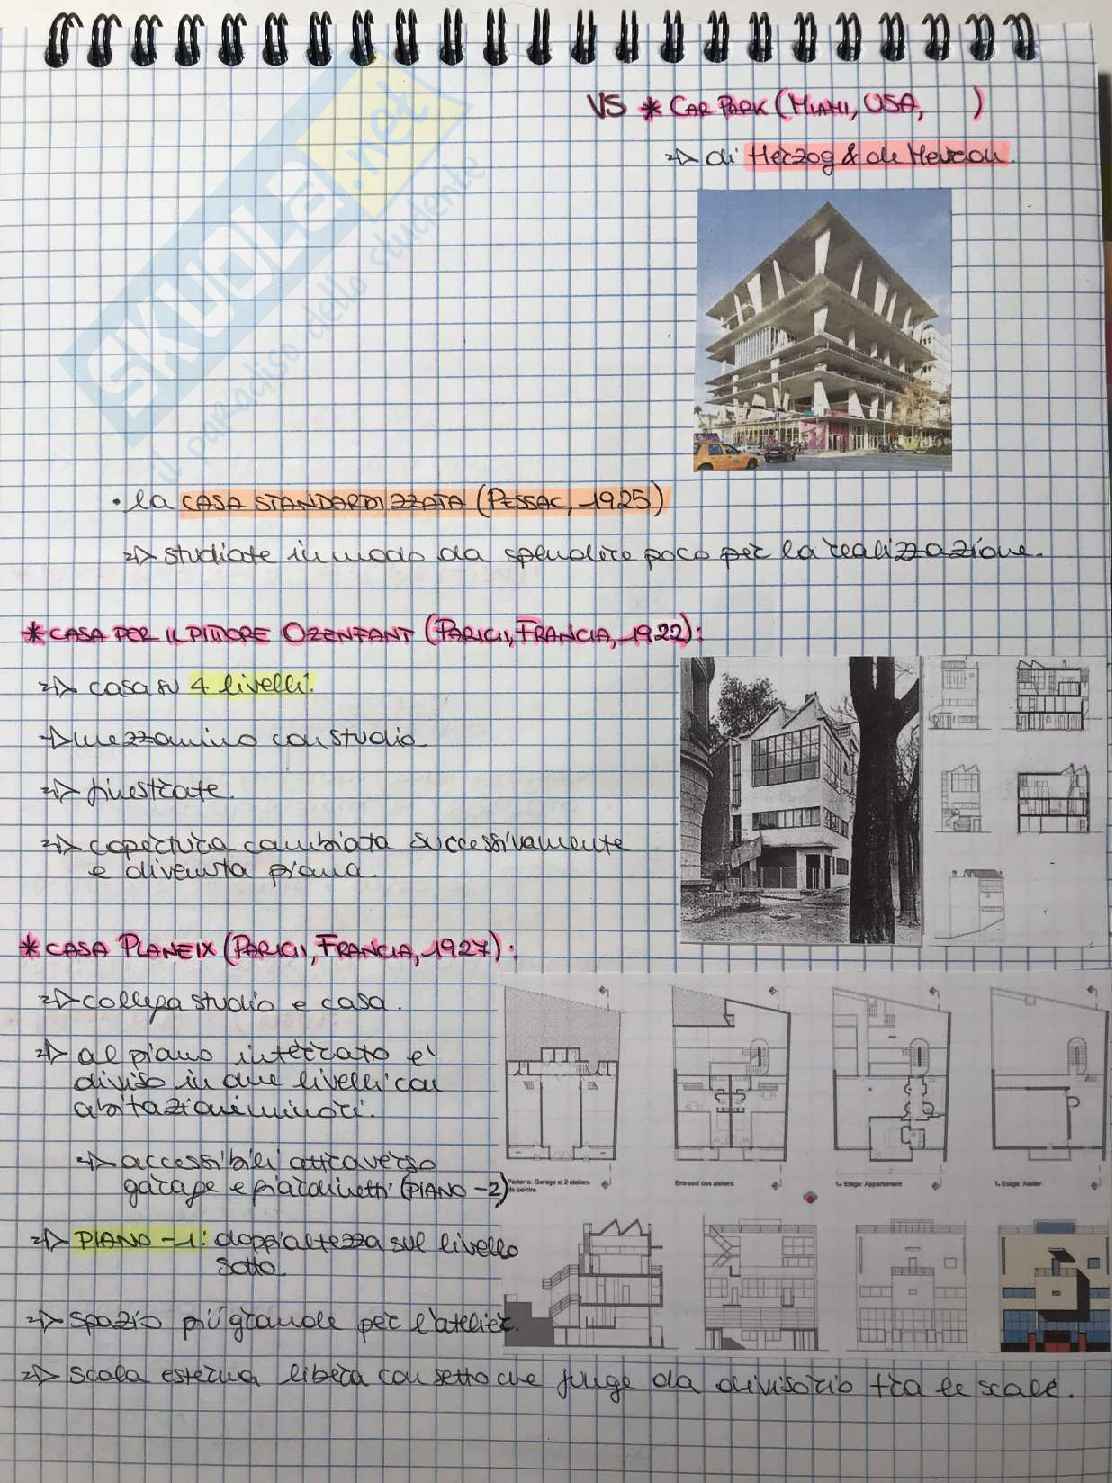 VS * CAR PARK (MIAMI, USA, )
=> di Herzog & de Meuron.
SKUOLA.net
il paradiso dello studente
• la CASA STANDARDIZZATA (PESSAC, 1925)
=> studiate in modo da spendire poco per la realizzazione.
* CASA PER IL PITTORE OZENFANT (PARIGI, FRANCIA, 1922):
=> casa su 4 livelli.
=> mezzanino con studio
=> finestrate.
=> copertura cambiata successivamente
e diventa piana.
* CASA PLANEIX (PARIGI, FRANCIA, 1927):
=> collega studio e casa.
=> al piano interrato e'
diviso in due livelli con
abitazioni minori.
=> accessibili attraverso
garage e giardinetti (PIANO -2)
Garage et 2 ateliers
Entresol des ateliers
1er Etage: Appartement
1er Etage: Atelier
=> PIANO -1: doppi altezza sul livello
sotto.
=> spazio più grande per l'atelier.
=> scala esterna libera con setto che funge da divisorio tra le scale.